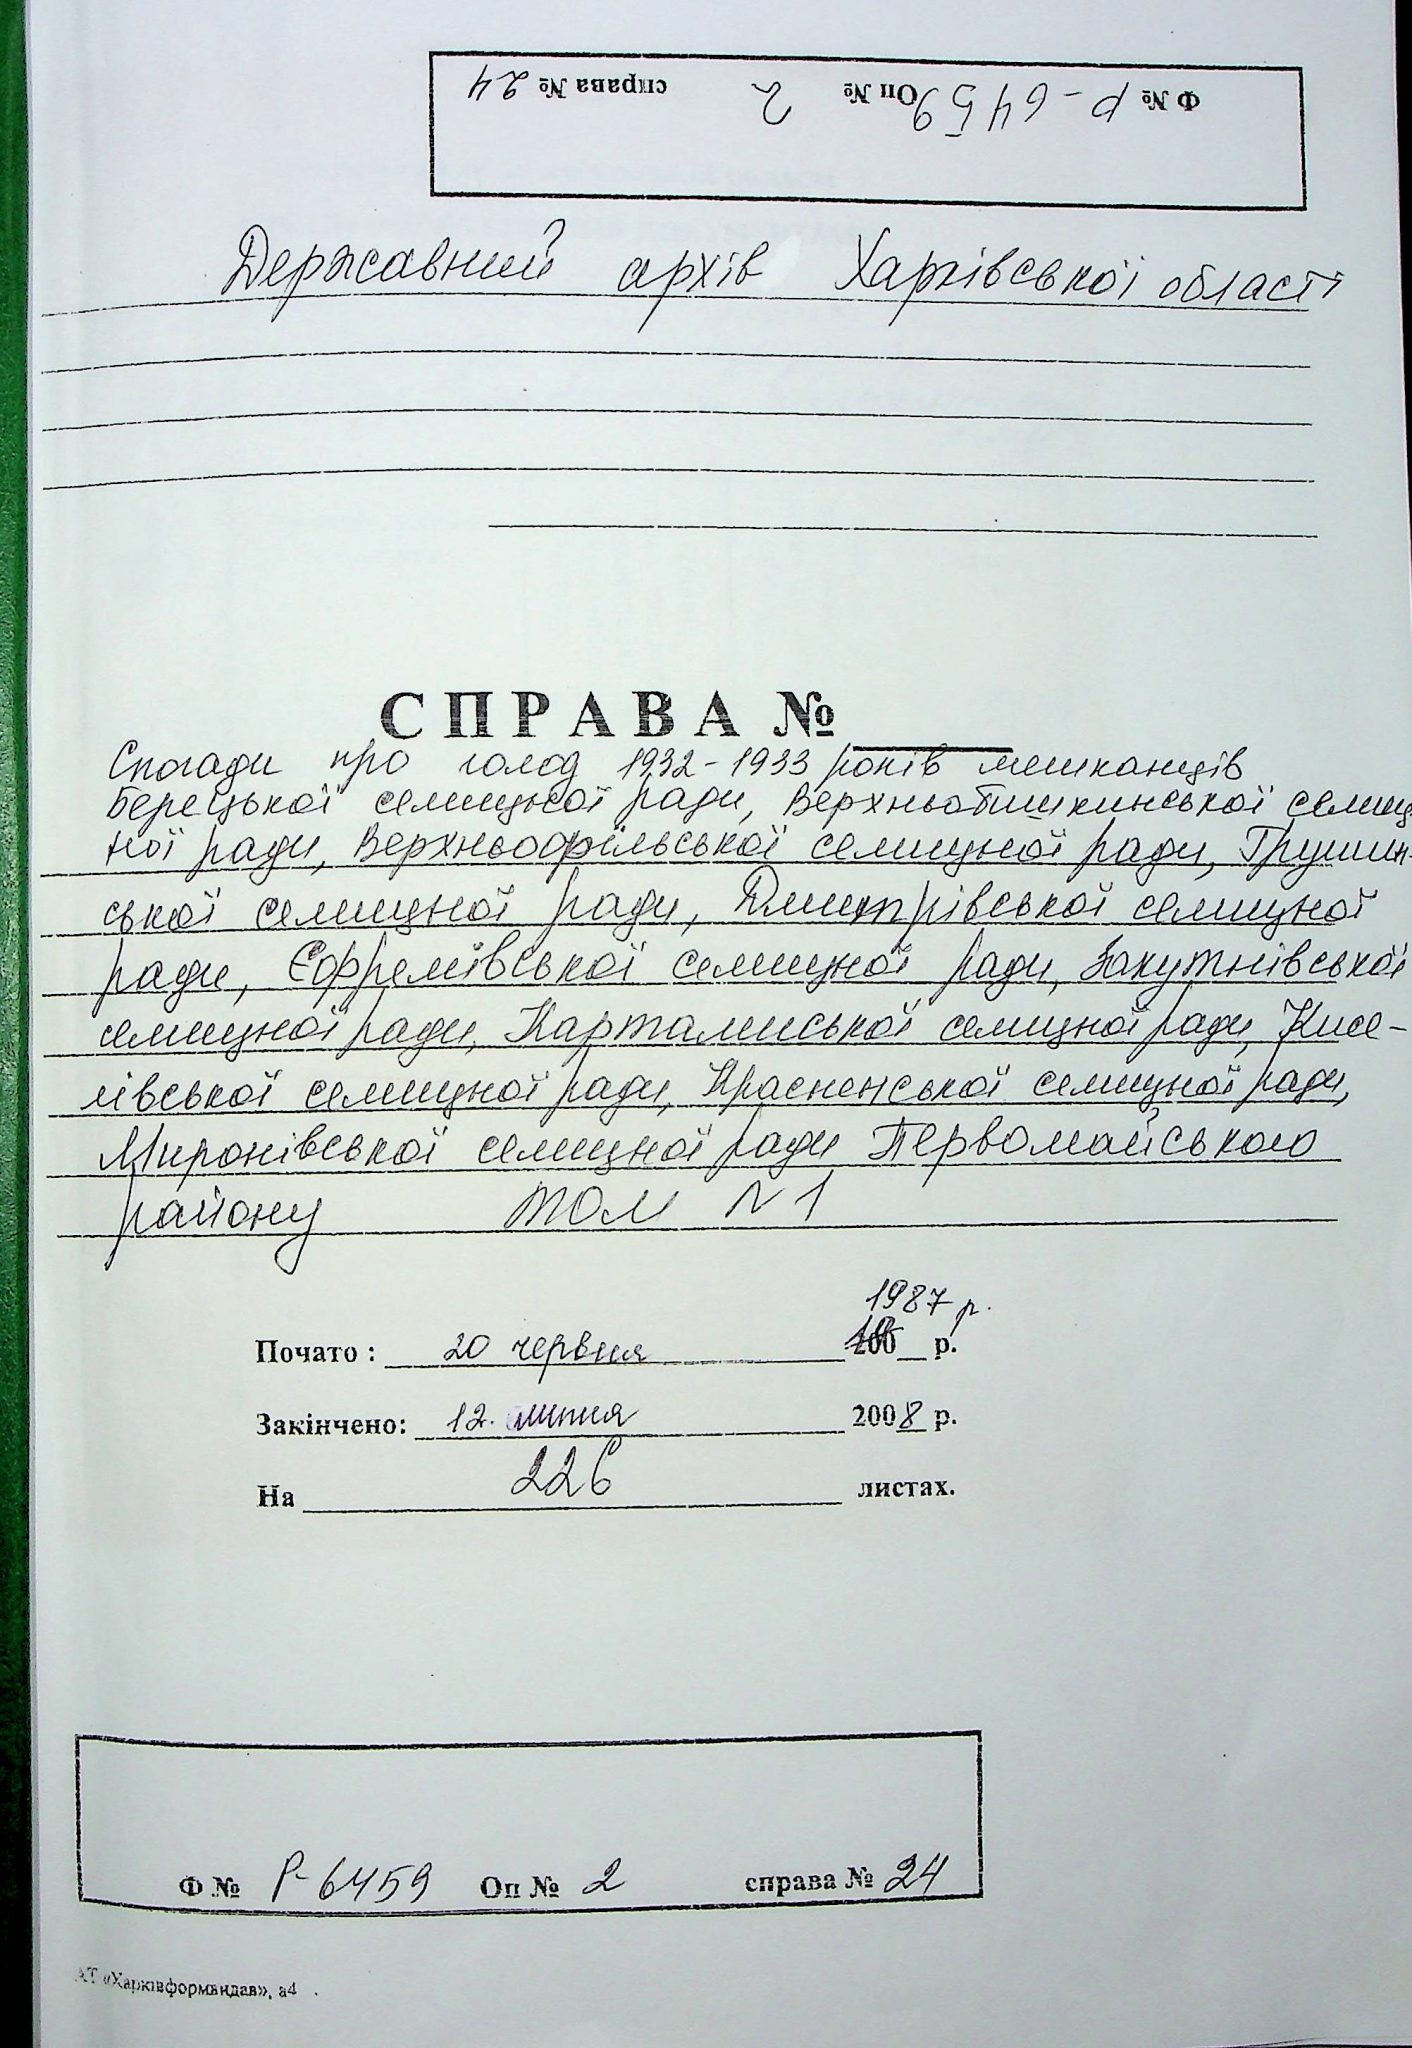 Ф № Р-6459 Оп № 2 справа № 24
Державний архів Харківської області
СПРАВА №
Спогади про голод 1932-1933 років мешканців
Берецької селищної ради, Верхньобишкинської селищ-
ної ради, Верхньоорільської селищної ради, Грушин-
ської селищної ради, Дмитрівської селищної
ради, Єфремівської селищної ради, Закутнівської
селищної ради, Картамиської селищної ради, Кисе-
лівської селищної ради, Красненської селищної ради,
Миронівської селищної ради Первомайського
району ТОМ N1
1987 р.
Почато : 20 червня р.
Закінчено: 12. липня 2008 р.
На 226 листах.
Ф № Р-6459 Оп № 2 справа № 24
АТ «Харківформвидав», а4